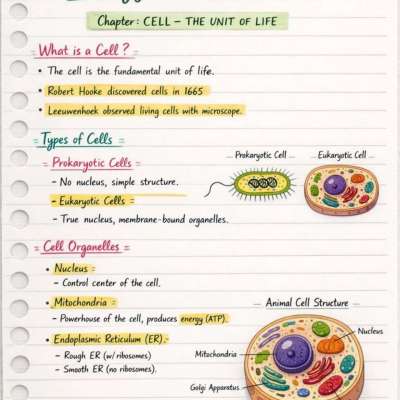 Chapter: CELL – THE UNIT OF LIFE
= What is a Cell ? =
• The cell is the fundamental unit of life.
• Robert Hooke discovered cells in 1665
• Leeuwenhoek observed living cells with microscope.
= Types of Cells =
= Prokaryotic Cells =
– No nucleus, simple structure.
– Eukaryotic Cells =
– True nucleus, membrane-bound organelles.
– Prokaryotic Cell –
Eukaryotic Cell –
= Cell Organelles =
• Nucleus =
– Control center of the cell.
• Mitochondria =
– Powerhouse of the cell, produces energy (ATP).
• Endoplasmic Reticulum (ER).-
– Rough ER (w/ ribosomes)
– Smooth ER (no ribosomes).
– Animal Cell Structure –
Nucleus
Mitochondria
Golgi Apparatus